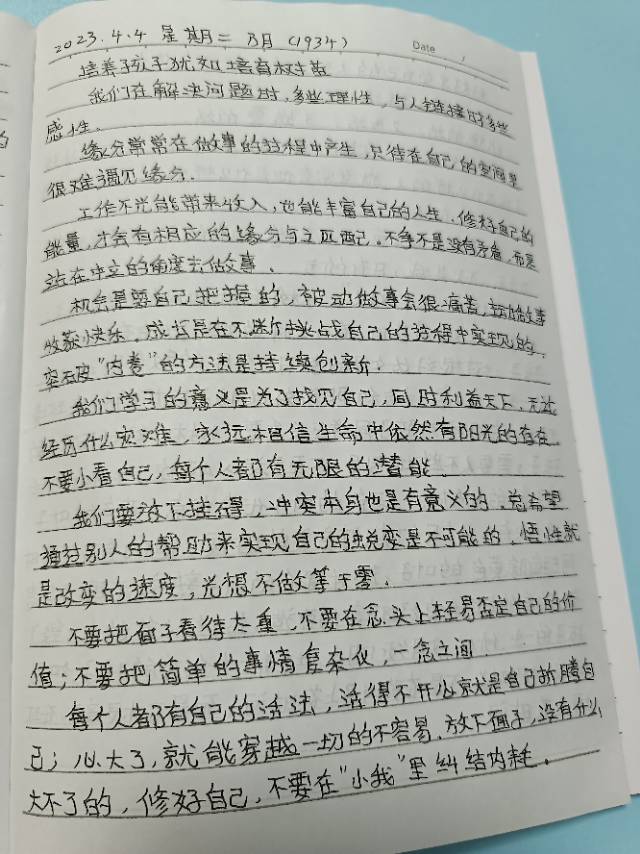 2023.4.4 星期二 阴 (1934)
Date
培养孩子犹如培育树苗
我们在解决问题时,多些理性,与人链接时多些
感性。
缘分常常在做事的过程中产生,只待在自己的空间里
很难遇见缘分。
工作不光能带来收入,也能丰富自己的人生。修好自己的
能量,才会有相应的缘分与之匹配。不争不是没有矛盾,而是
站在中立的角度去做事。
机会是要自己把握的,被动做事会很痛苦,主动做事
收获快乐。成长是在不断挑战自己的过程中实现的。
突破"内卷"的方法是持续创新。
我们学习的意义是为了找见自己,同时利益天下。无论
经历什么灾难,永远相信生命中依然有阳光的存在。
不要小看自己,每个人都有无限的潜能。
我们要放下挂碍,冲突本身也是有意义的。总希望
通过别人的帮助来实现自己的蜕变是不可能的。悟性就
是改变的速度,光想不做等于零。
不要把面子看待太重,不要在念头上轻易否定自己的价
值;不要把简单的事情复杂化,一念之间。
每个人都有自己的活法,活得不开心就是自己折腾自
己;心大了,就能穿越一切的不容易。放下面子,没有什么
大不了的,修好自己,不要在"小我"里纠结内耗。